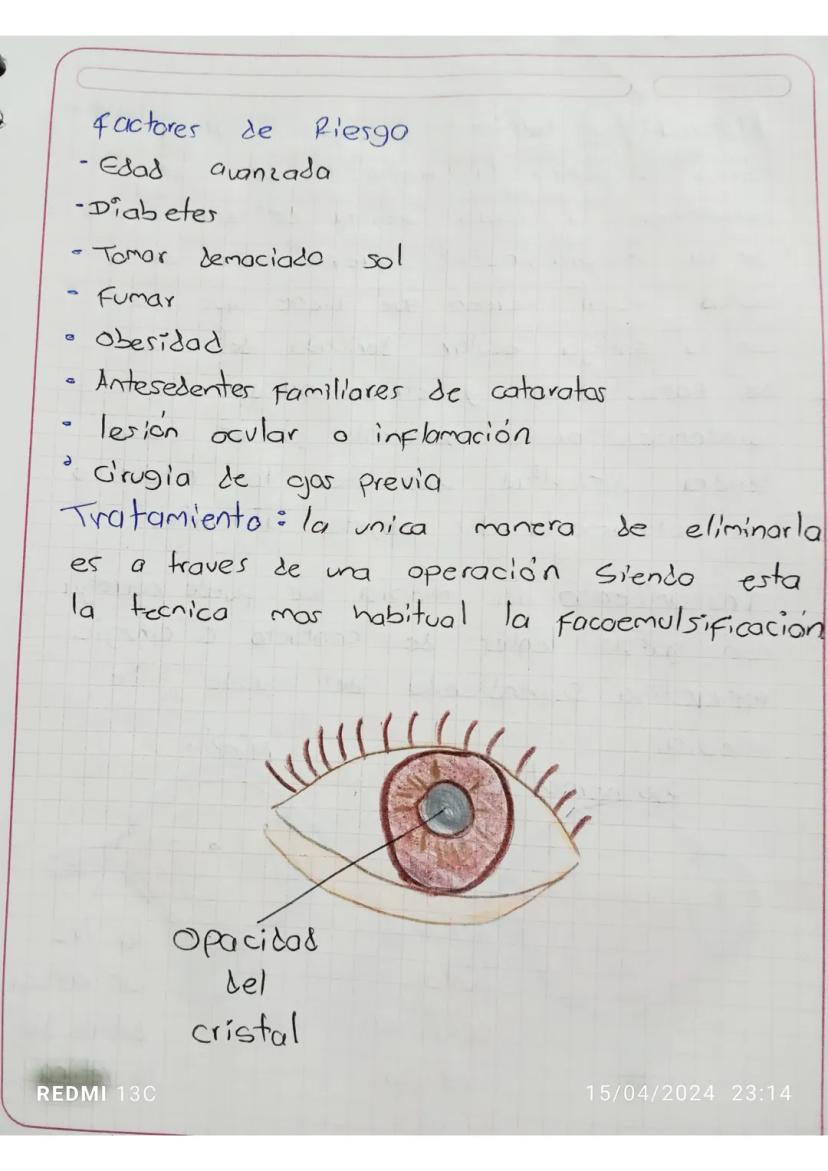 Factores de Riesgo
- Edad avanzada
- Diabetes
- Tomar demaciado sol
- Fumar
• Obesidad
• Antesedentes Familiares de cataratas
- lesión ocular o inflamación
• cirugia de ojos previa
Tratamiento: la unica manera de eliminarla
es a traves de una operación Siendo esta
la tecnica mas habitual la facoemulsificación
Opacidad
del
cristal
REDMI 13C
15/04/2024 23:14